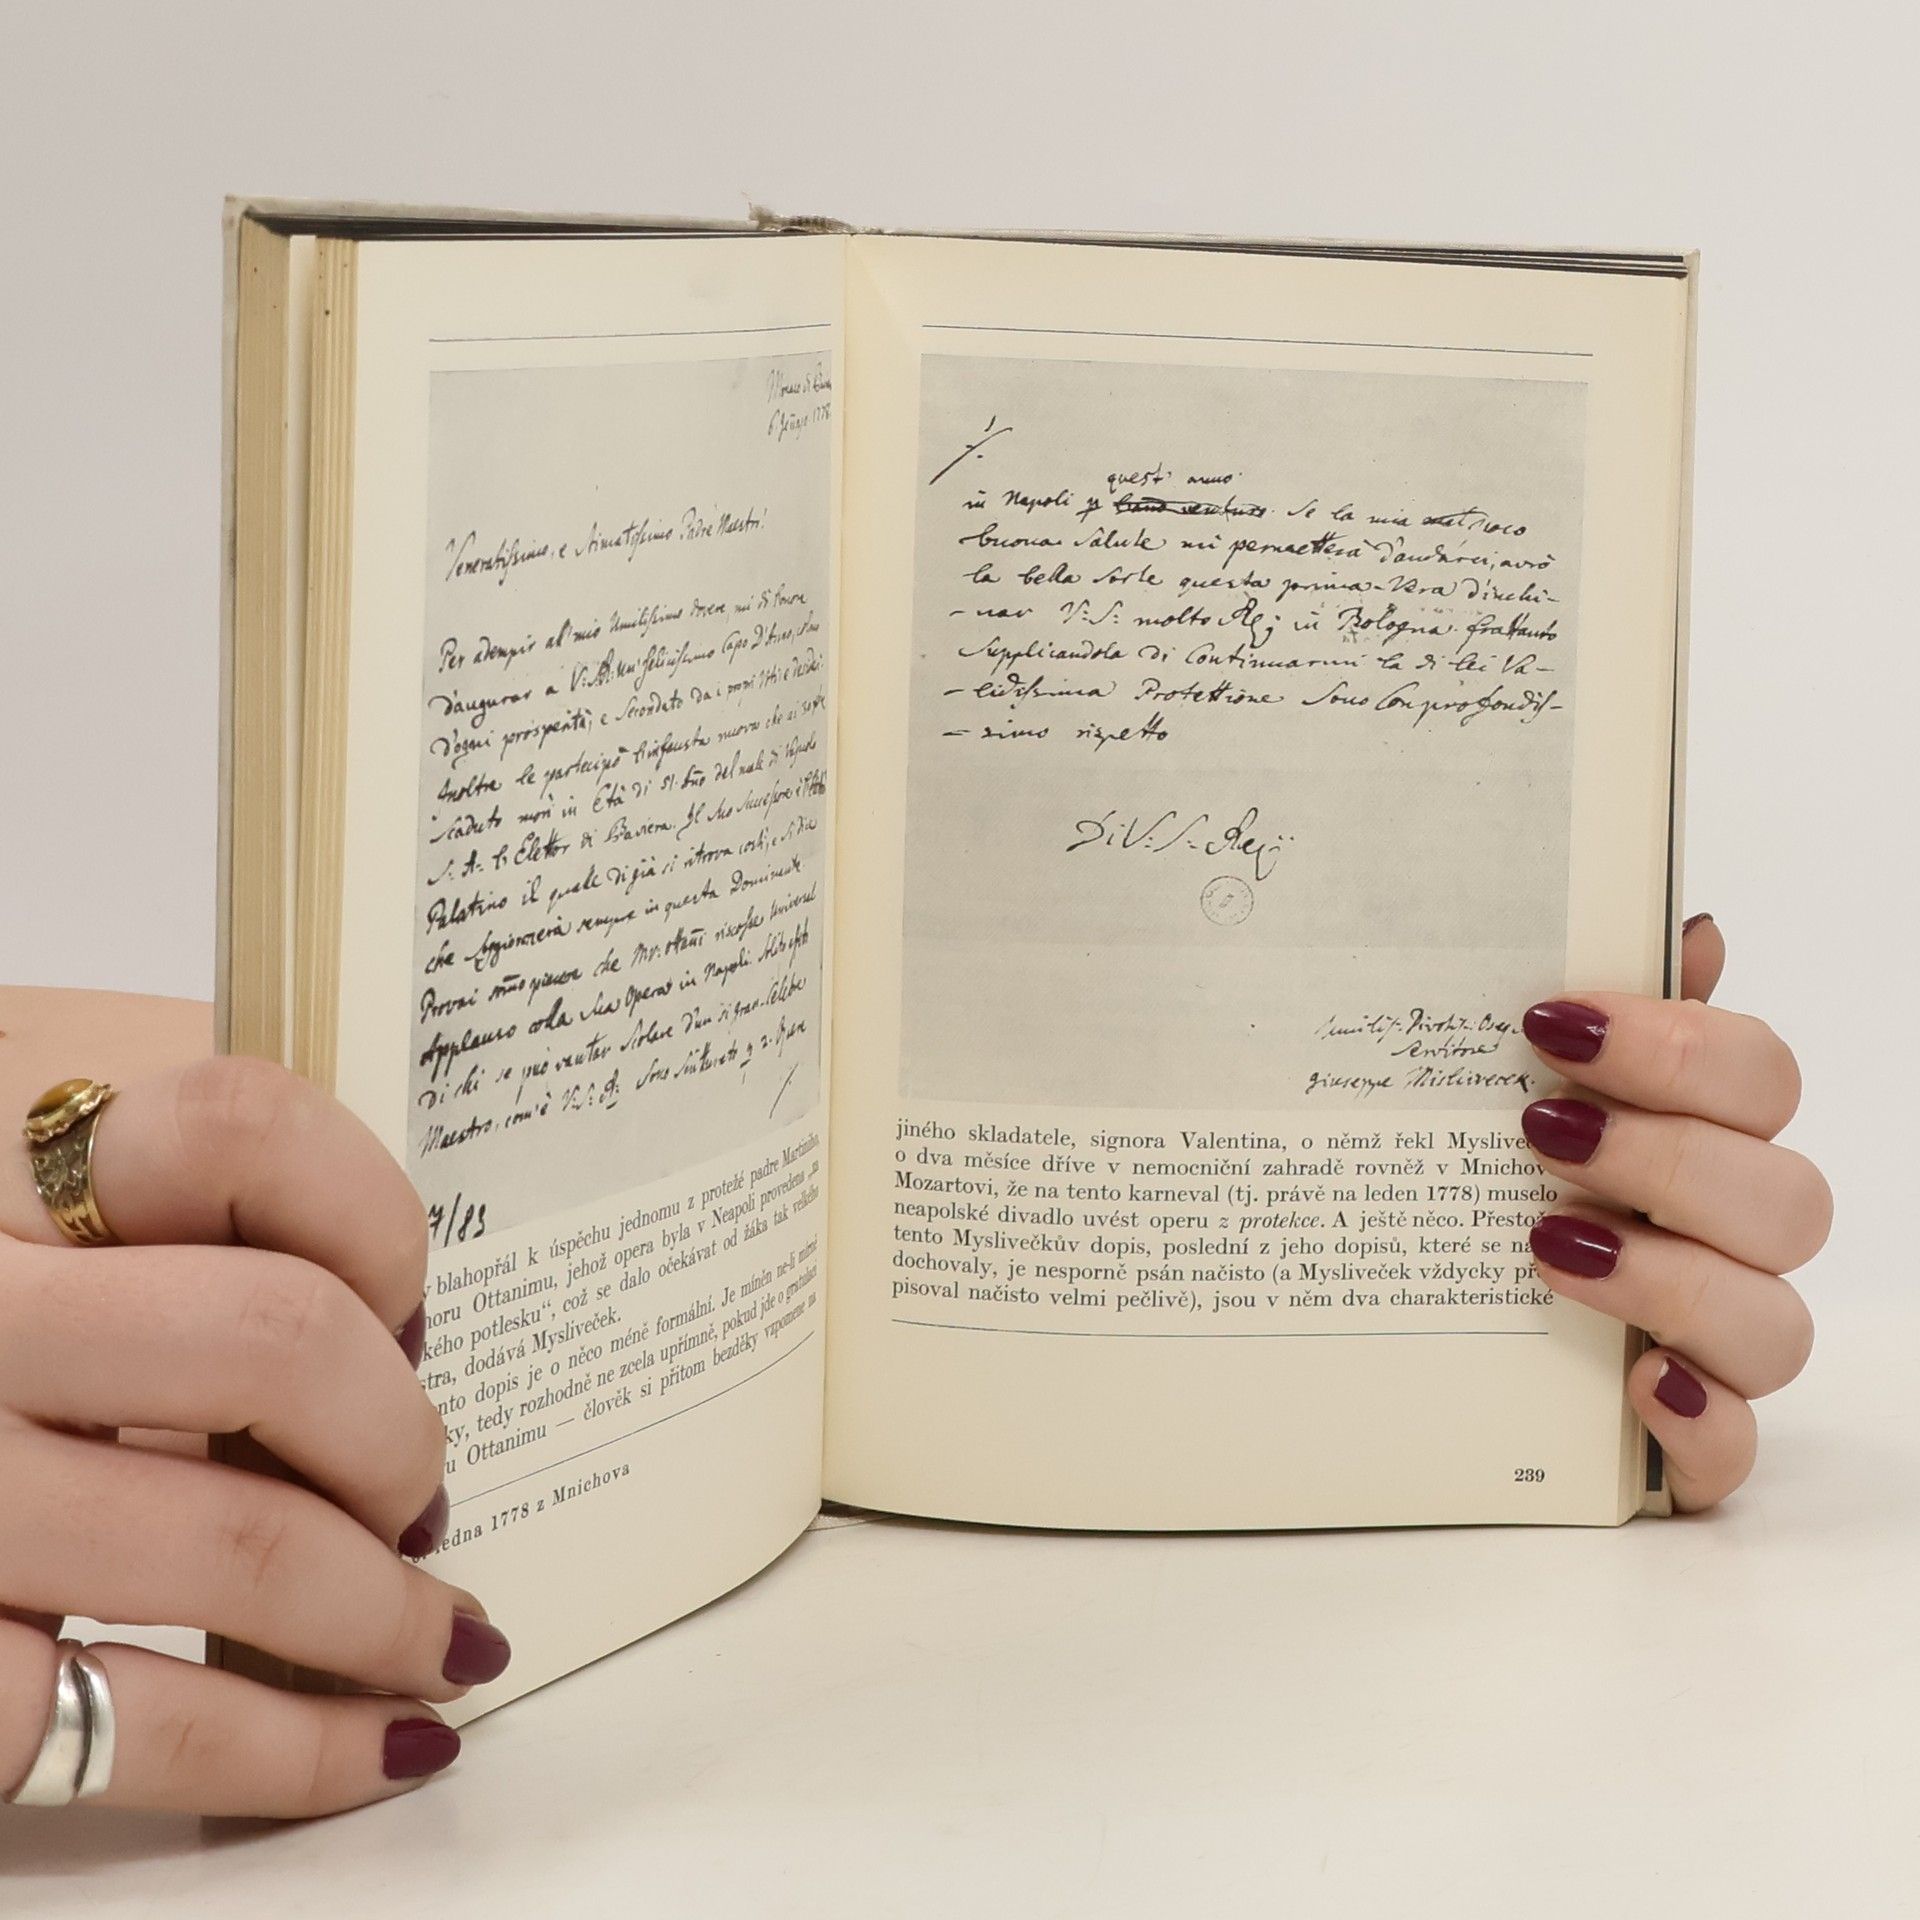 6. 1778.
Veneratissimo, e Stimatissimo Padre Maestro!
Per adempir al' mio Umilissimo dovere, mi di l'onore
D'augurar a V: un' felicissimo Capo D'Anno, colmo
D'ogni prosperità, e secondato da i proprj Voti e desiderj.
Inoltre le partecipò l'infausta nuova che ai
Scaduto morì in Età di 51. del male di Vajuolo
S: A: l'Elettor di Baviera. Il suo Successore è l'Elettor
Palatino il quale di già si ritrova costì, e si dice
che sempre in questa Dominante.
Provai sommo piacere che Mr: Ottani riscosse universal
Applauso colla sua Opera in Napoli. Soliti effetti
Di chi se può vantar Scolare d'un sì gran Celebre
Maestro, com'è V: S: Sono p 2. Opere
7/83
v blahopřál k úspěchu jednomu z protežé padre Martiniho
noru Ottanimu, jehož opera byla v Neapoli provedena „za
kého potlesku“, což se dalo očekávat od žáka tak velkého
stra, dodává Mysliveček.
nto dopis je o něco méně formální. Je míněn ne-li mírně
ky, tedy rozhodně ne zcela upřímně, pokud jde o gratulaci
u Ottanimu — člověk si přitom bezděky vzpomene na
ledna 1778 z Mnichova
quest' anno
in Napoli p Se la mia poco
buona Salute mi permetterà d'andarci, avrò
la bella sorte questa prima-Vera d'inchi-
-nar V: S: molto in Bologna. frattanto
Supplicandola di Continuarmi la di lei Va-
-lidissima Protettione Sono Con profondis-
-simo rispetto
Di V: S:
Servitore
Giuseppe Misliwecek
jiného skladatele, signora Valentina, o němž řekl Mysliveč
o dva měsíce dříve v nemocniční zahradě rovněž v Mnichov
Mozartovi, že na tento karneval (tj. právě na leden 1778) muselo
neapolské divadlo uvést operu z protekce. A ještě něco. Přestož
tento Myslivečkův dopis, poslední z jeho dopisů, které se na
dochovaly, je nesporně psán načisto (a Mysliveček vždycky př
pisoval načisto velmi pečlivě), jsou v něm dva charakteristické
239